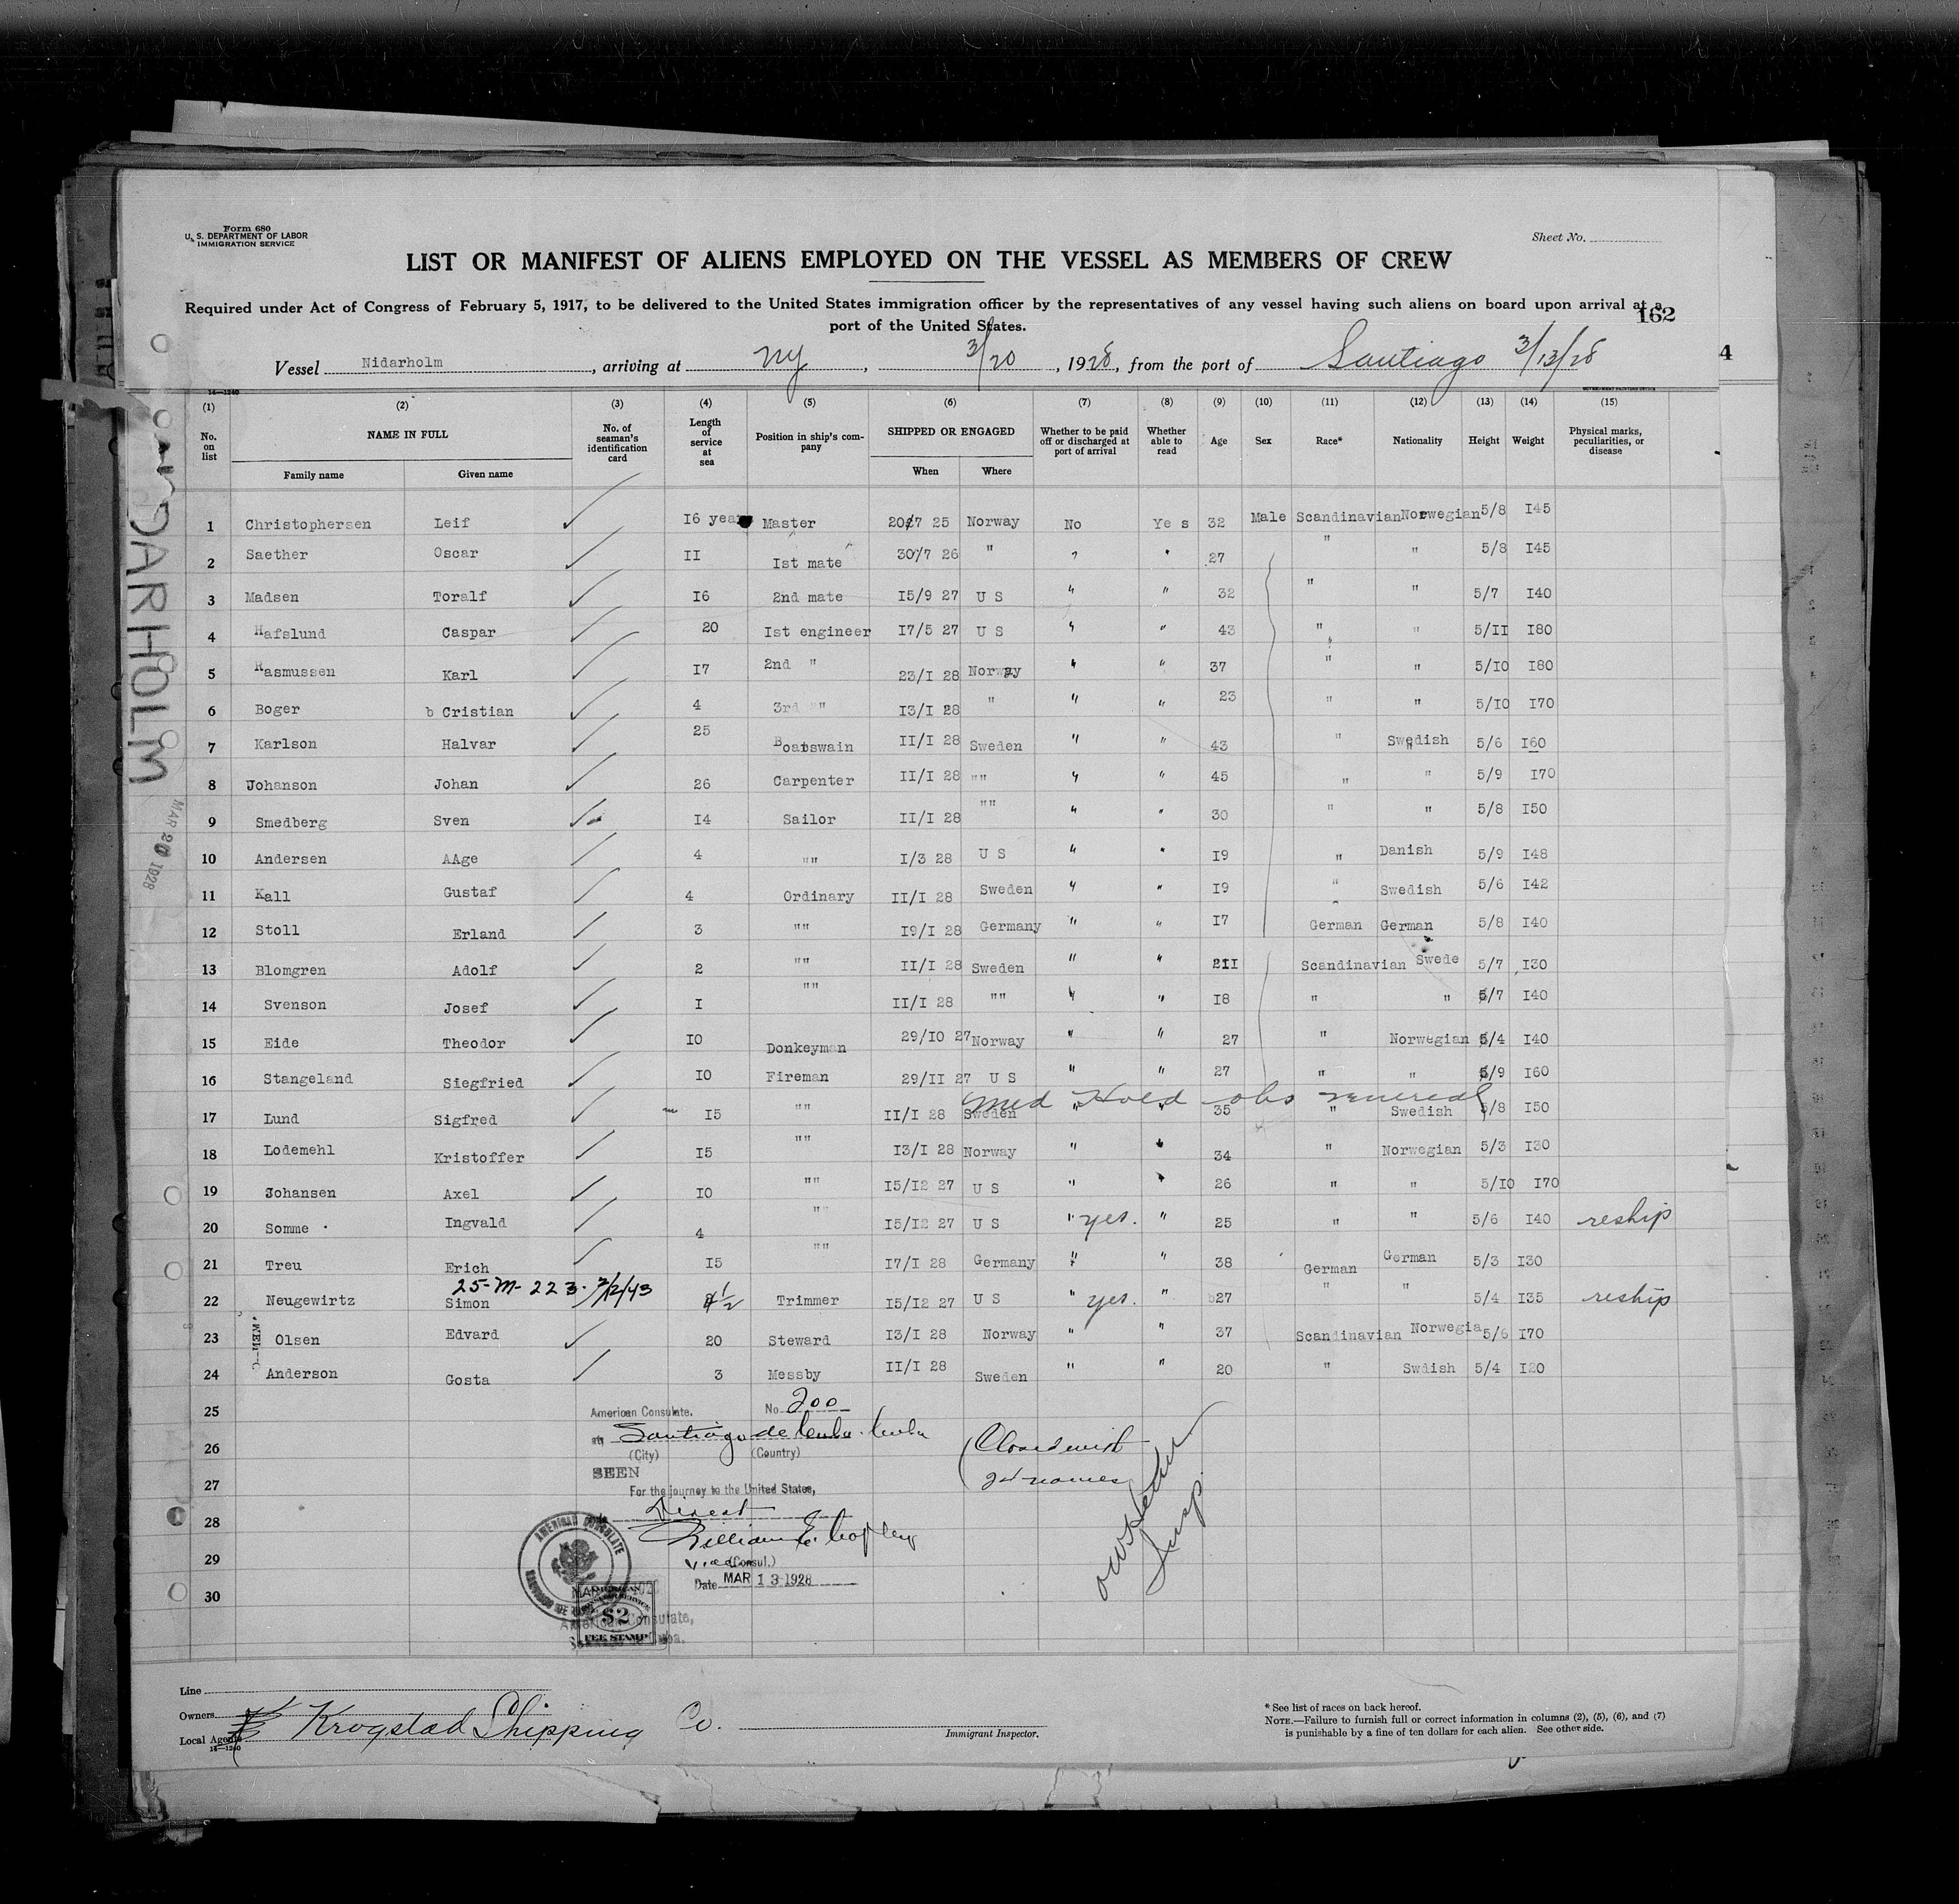 Form 680
U. S. DEPARTMENT OF LABOR
IMMIGRATION SERVICE
Sheet No.
LIST OR MANIFEST OF ALIENS EMPLOYED ON THE VESSEL AS MEMBERS OF CREW
Required under Act of Congress of February 5, 1917, to be delivered to the United States immigration officer by the representatives of any vessel having such aliens on board upon arrival at a
port of the United States.
162
Vessel Nidarholm, arriving at NY, 3/20, 1928, from the port of Santiago 3/13/28
4
14—1240
(1) (2) (3) (4) (5) (6) (7) (8) (9) (10) (11) (12) (13) (14) (15)
No. on list NAME IN FULL No. of seaman's identification card Length of service at sea Position in ship's company SHIPPED OR ENGAGED Whether to be paid off or discharged at port of arrival Whether able to read Age Sex Race* Nationality Height Weight Physical marks, peculiarities, or disease
Family name Given name When Where
1 Christophersen Leif 16 years Master 20/7 25 Norway No Ye s 32 Male Scandinavian Norwegian 5/8 I45
2 Saether Oscar II Ist mate 30/7 26 " " " 27 " " 5/8 I45
3 Madsen Toralf I6 2nd mate I5/9 27 U S " " 32 " " 5/7 I40
4 Hafslund Caspar 20 Ist engineer I7/5 27 U S " " 43 " " 5/II I80
5 Rasmussen Karl I7 2nd " 23/I 28 Norway " " 37 " " 5/IO I80
6 Boger b Cristian 4 3rd "" I3/I 28 " " " 23 " " 5/IO I70
7 Karlson Halvar 25 Boatswain II/I 28 Sweden " " 43 " Swedish 5/6 I60
8 Johanson Johan 26 Carpenter II/I 28 "" " " 45 " " 5/9 I70
9 Smedberg Sven I4 Sailor II/I 28 "" " " 30 " " 5/8 I50
10 Andersen AAge 4 "" I/3 28 U S " " I9 " Danish 5/9 I48
11 Kall Gustaf 4 Ordinary II/I 28 Sweden " " I9 " Swedish 5/6 I42
12 Stoll Erland 3 "" I9/I 28 Germany " " I7 German German 5/8 I40
13 Blomgren Adolf 2 "" II/I 28 Sweden " " 2II Scandinavian Swede 5/7 I30
14 Svenson Josef I "" II/I 28 "" " " I8 " " 5/7 I40
15 Eide Theodor IO Donkeyman 29/IO 27 Norway " " 27 " Norwegian 5/4 I40
16 Stangeland Siegfried IO Fireman 29/II 27 U S " " 27 " " 5/9 I60
Med Hold obs venereal
17 Lund Sigfred I5 "" II/I 28 Sweden " " 35 " Swedish 5/8 I50
18 Lodemehl Kristoffer I5 "" I3/I 28 Norway " " 34 " Norwegian 5/3 I30
19 Johansen Axel IO "" I5/I2 27 U S " " 26 " " 5/IO I70
20 Somme Ingvald 4 "" I5/I2 27 U S " yes. " 25 " " 5/6 I40 reship
21 Treu Erich I5 "" I7/I 28 Germany " " 38 German German 5/3 I30
25-M-223. 7/12/43
22 Neugewirtz Simon 1/2 Trimmer I5/I2 27 U S " yes. " 27 " " 5/4 I35 reship
23 Olsen Edvard 20 Steward I3/I 28 Norway " " 37 Scandinavian Norwegia 5/6 I70
24 Anderson Gosta 3 Messby II/I 28 Sweden " " 20 " Swdish 5/4 I20
25
26
27
28
29
30
American Consulate. No. 200
at Santiago de Cuba. Cuba
(City) (Country)
SEEN
For the journey to the United States,
Direct
William E. Copley
Vice (Consul.)
Date MAR 13 1928
Closed with
24 names
Insp.
AMERICAN CONSULATE
$2
FEE STAMP
American Consulate,
NIDARHOLM
MAR 20 1928
Line
Owners
Local Agents
Krogstad Shipping Co.
14—1240
Immigrant Inspector.
* See list of races on back hereof.
NOTE.—Failure to furnish full or correct information in columns (2), (5), (6), and (7)
is punishable by a fine of ten dollars for each alien. See other side.